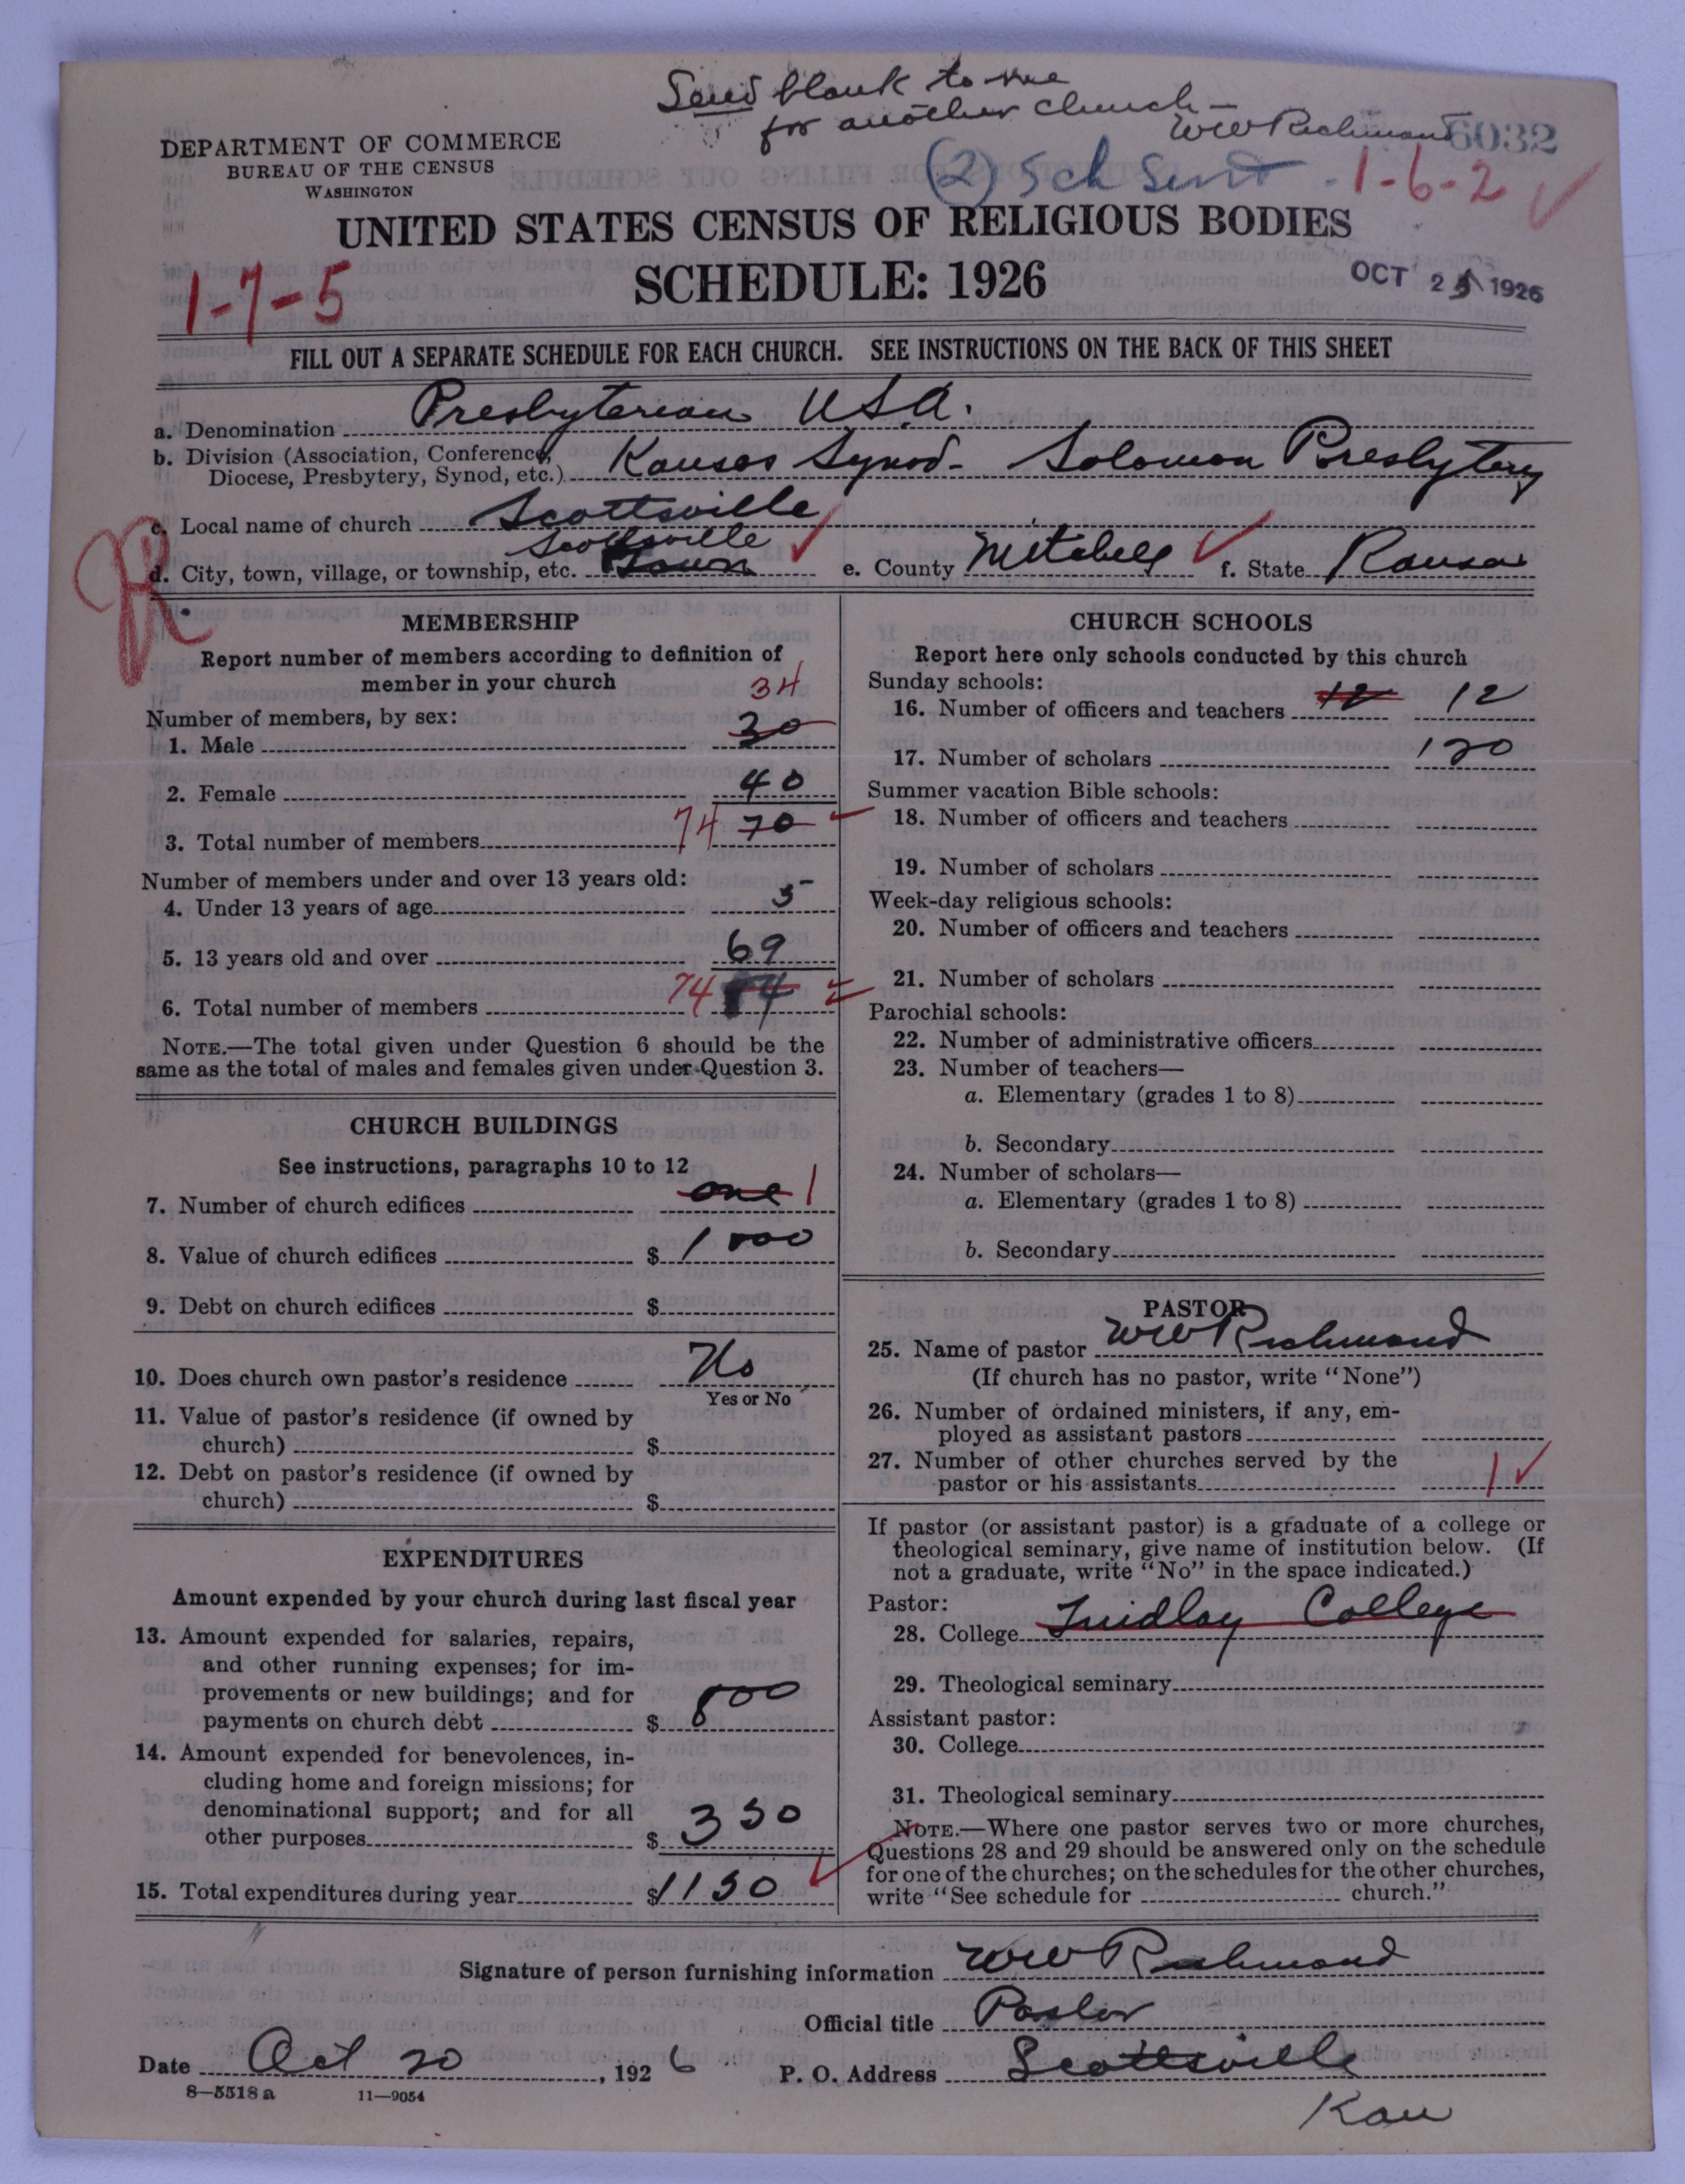 Send blank to me
for another church—
WW Richmond
6032
(2) Sch Sent - 1-6-2 ✓
DEPARTMENT OF COMMERCE
BUREAU OF THE CENSUS
WASHINGTON
UNITED STATES CENSUS OF RELIGIOUS BODIES
SCHEDULE: 1926
1-7-5
OCT 25 1926
FILL OUT A SEPARATE SCHEDULE FOR EACH CHURCH. SEE INSTRUCTIONS ON THE BACK OF THIS SHEET
a. Denomination Presbyterian U.S.A.
b. Division (Association, Conference, Diocese, Presbytery, Synod, etc.) Kansas Synod - Solomon Presbytery
c. Local name of church Scottsville
Scottsville
d. City, town, village, or township, etc. Town e. County Mitchell f. State Kansas
R
MEMBERSHIP
Report number of members according to definition of
member in your church
34
Number of members, by sex:
1. Male 30
2. Female 40
3. Total number of members 74 70
Number of members under and over 13 years old:
4. Under 13 years of age 5
5. 13 years old and over 69
6. Total number of members 74 74
NOTE.—The total given under Question 6 should be the
same as the total of males and females given under Question 3.
CHURCH BUILDINGS
See instructions, paragraphs 10 to 12
7. Number of church edifices one 1
8. Value of church edifices $ 1000
9. Debt on church edifices $
10. Does church own pastor's residence No
Yes or No
11. Value of pastor's residence (if owned by
church) $
12. Debt on pastor's residence (if owned by
church) $
EXPENDITURES
Amount expended by your church during last fiscal year
13. Amount expended for salaries, repairs,
and other running expenses; for im-
provements or new buildings; and for
payments on church debt $ 800
14. Amount expended for benevolences, in-
cluding home and foreign missions; for
denominational support; and for all
other purposes $ 350
15. Total expenditures during year $ 1150
CHURCH SCHOOLS
Report here only schools conducted by this church
Sunday schools:
16. Number of officers and teachers 12 12
17. Number of scholars 120
Summer vacation Bible schools:
18. Number of officers and teachers
19. Number of scholars
Week-day religious schools:
20. Number of officers and teachers
21. Number of scholars
Parochial schools:
22. Number of administrative officers
23. Number of teachers—
a. Elementary (grades 1 to 8)
b. Secondary
24. Number of scholars—
a. Elementary (grades 1 to 8)
b. Secondary
PASTOR
25. Name of pastor WW Richmond
(If church has no pastor, write "None")
26. Number of ordained ministers, if any, em-
ployed as assistant pastors
27. Number of other churches served by the
pastor or his assistants 1
If pastor (or assistant pastor) is a graduate of a college or
theological seminary, give name of institution below. (If
not a graduate, write "No" in the space indicated.)
Pastor:
28. College College
29. Theological seminary
Assistant pastor:
30. College
31. Theological seminary
NOTE.—Where one pastor serves two or more churches,
Questions 28 and 29 should be answered only on the schedule
for one of the churches; on the schedules for the other churches,
write "See schedule for church."
Signature of person furnishing information WW Richmond
Official title Pastor
Date Oct 20, 1926 P. O. Address Scottsville
Kan
8—5518 a 11—9054